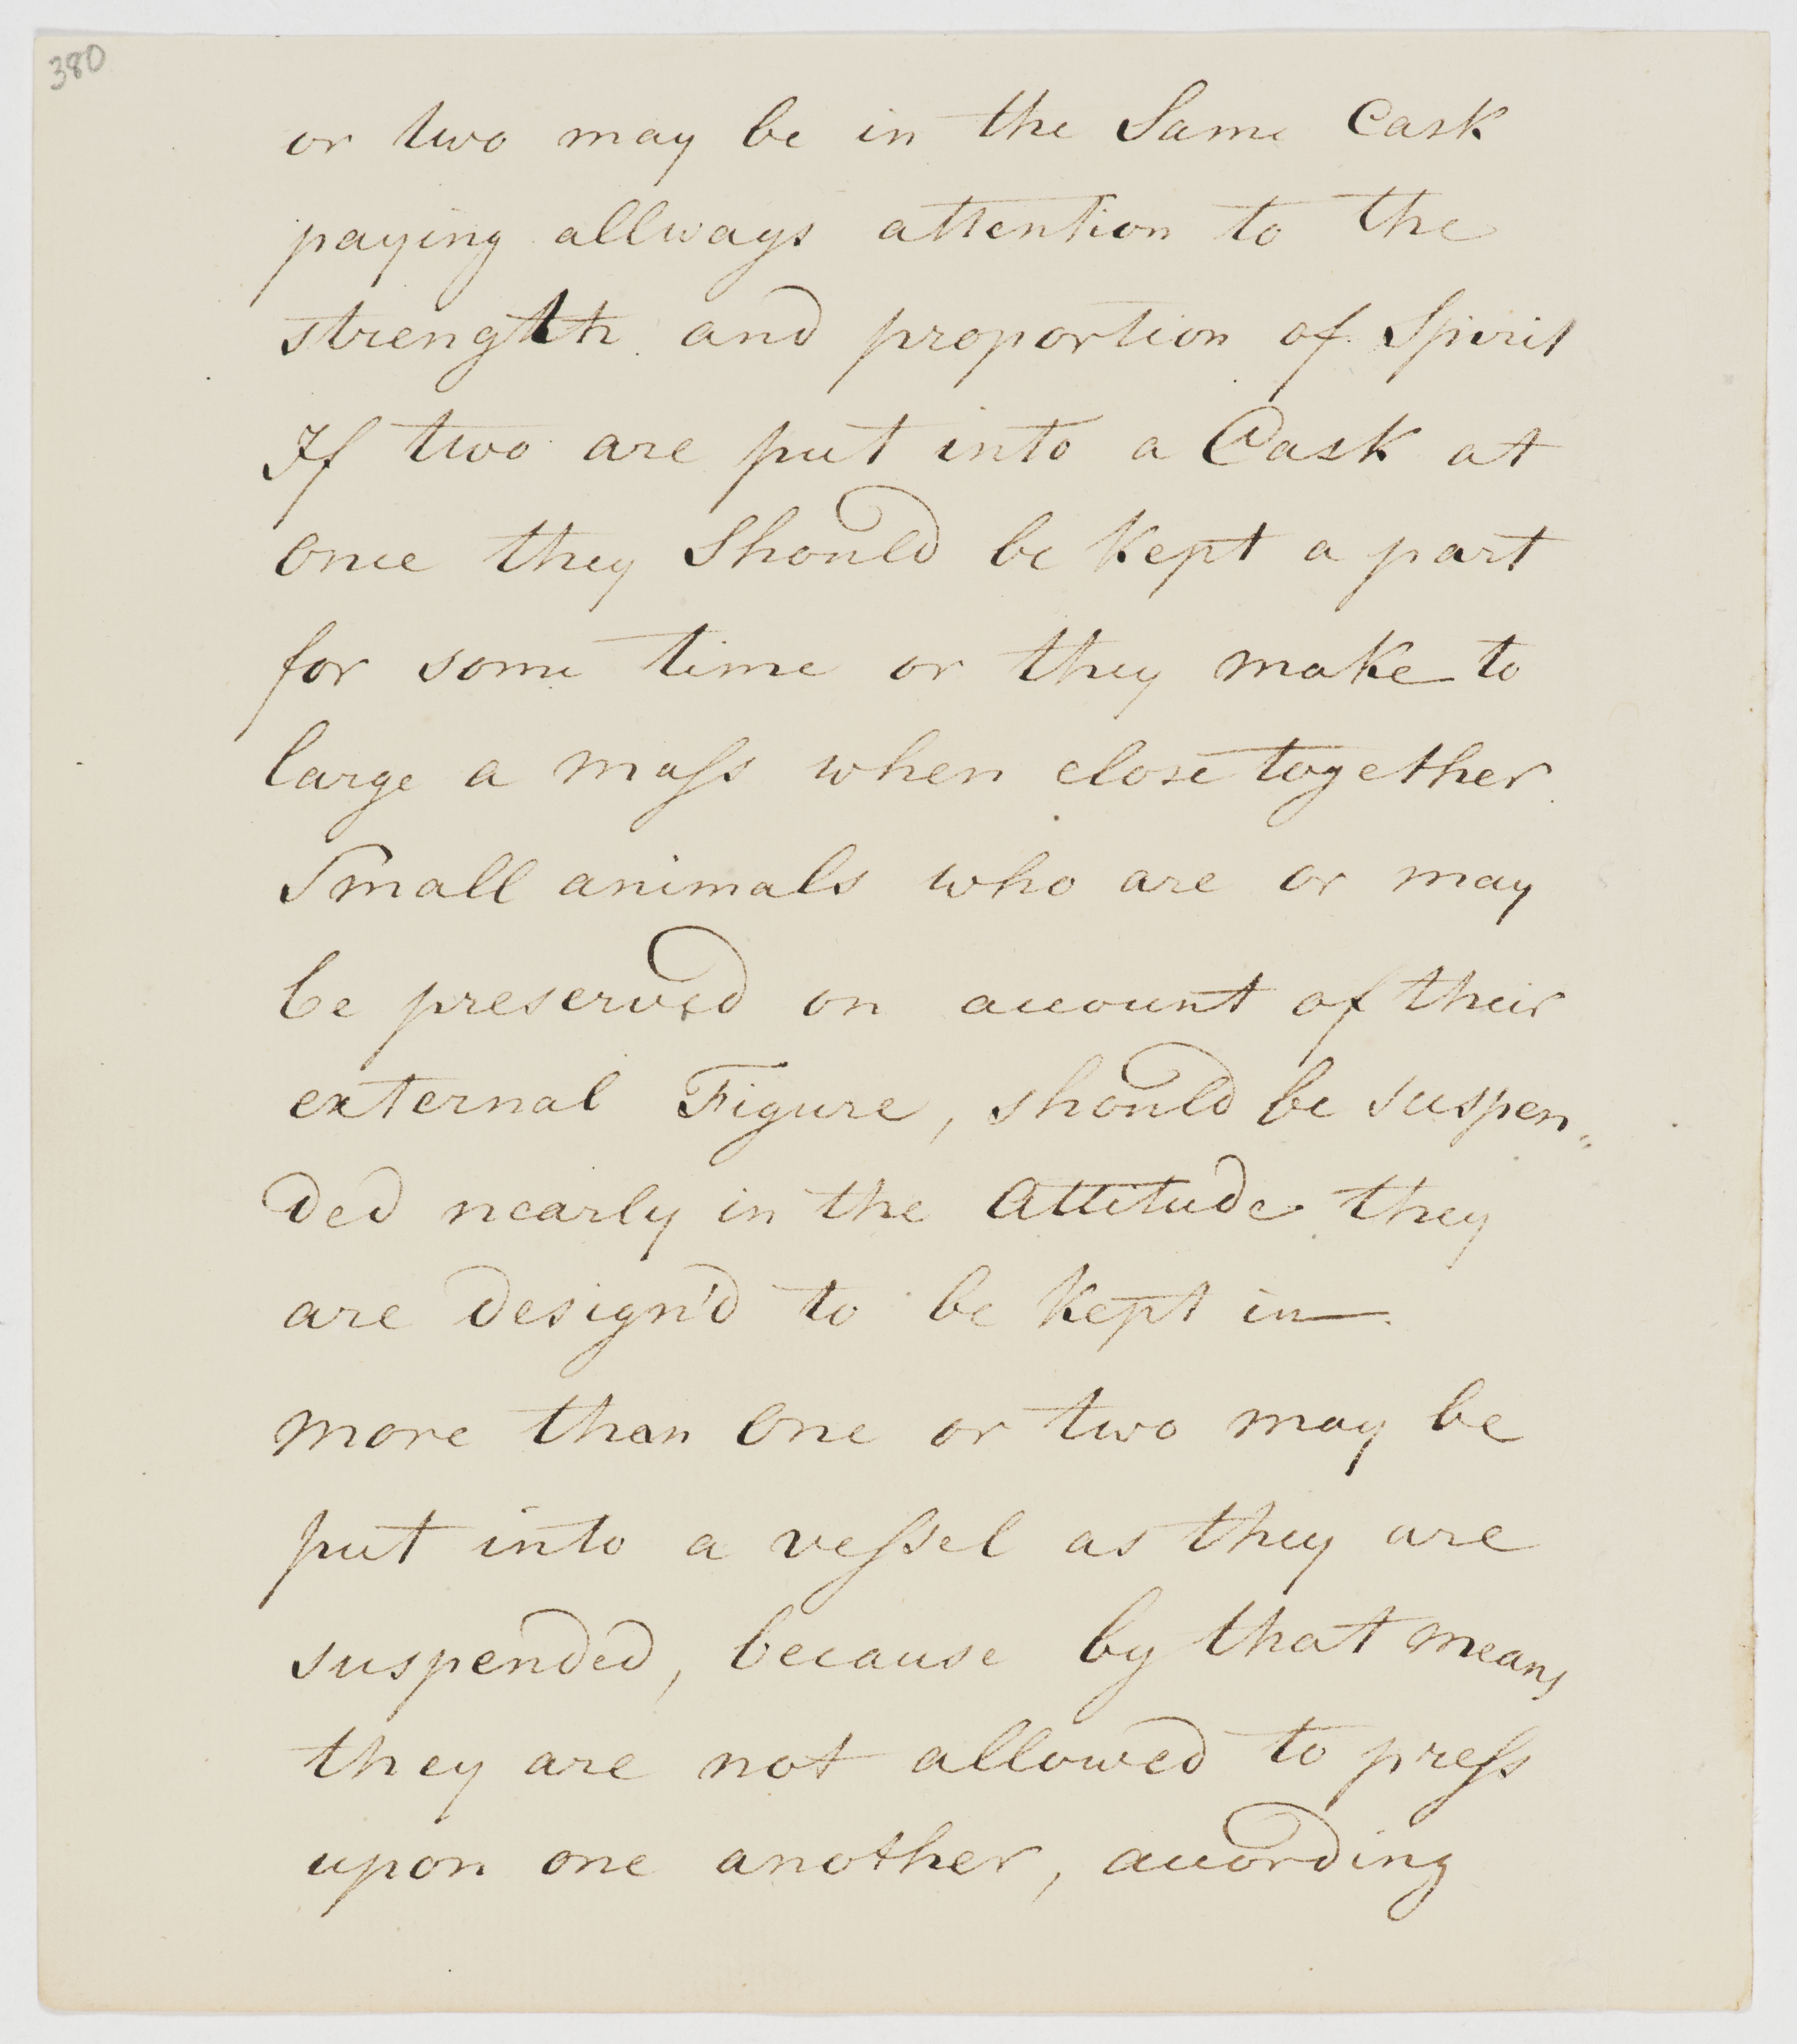 380
or two may be in the Same Cask
paying allways attention to the
strength and proportion of Spirit
If two are put into a Cask at
once they Should be Kept a part
for some time or they make to
large a maſs when close together
Small animals who are or may
be preserved on account of their
external Figure, should be suspen„
ded nearly in the Attitude they
are design'd to be Kept in —
more than One or two may be
put into a veſsel as they are
suspended, because by that means
they are not allowed to preſs
upon one another, according